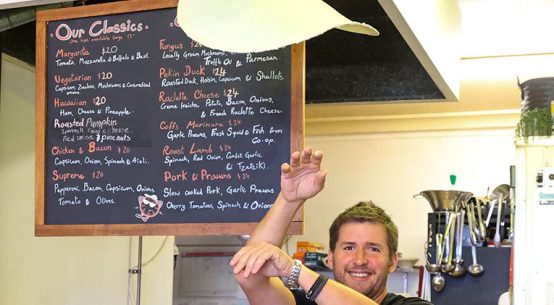 Our Classics
One size available large 13"
Margarita $20
Tomato, Mozzarella, Buffalo & Basil.
Vegetarian $20
Capsicum, Zucchini, Mushrooms & Caramelised Onions
Hawaiian $20
Ham, Onions & Pineapple.
Roasted Pumpkin
Spinach, Goats cheese
Red onion & Pinenuts
Chicken & Bacon $20
Capsicum, Onion, Spinach & Aioli.
Supreme $20
Pepperoni, Bacon, Capsicum, Onion,
Tomato & Olives.
Fungus
Locally Grown Mushrooms,
Truffle Oil & Parmesan.
Pekin Duck $24
Roasted Duck, Hoisin, Capsicum & Shallots.
Raclette Cheese $24
Creme Fraiche, Potato, Bacon, Onions,
& French Raclette Cheese
Coffs Marinara $24
Garlic Prawns, Fresh Squid & Fish from
Co-op.
Roast Lamb $24
Spinach, Red Onion,
& Tzatziki.
Pork & Prawns $24
Slow cooked Pork, Garlic Prawns
Cherry Tomatoes, Spinach & Onions